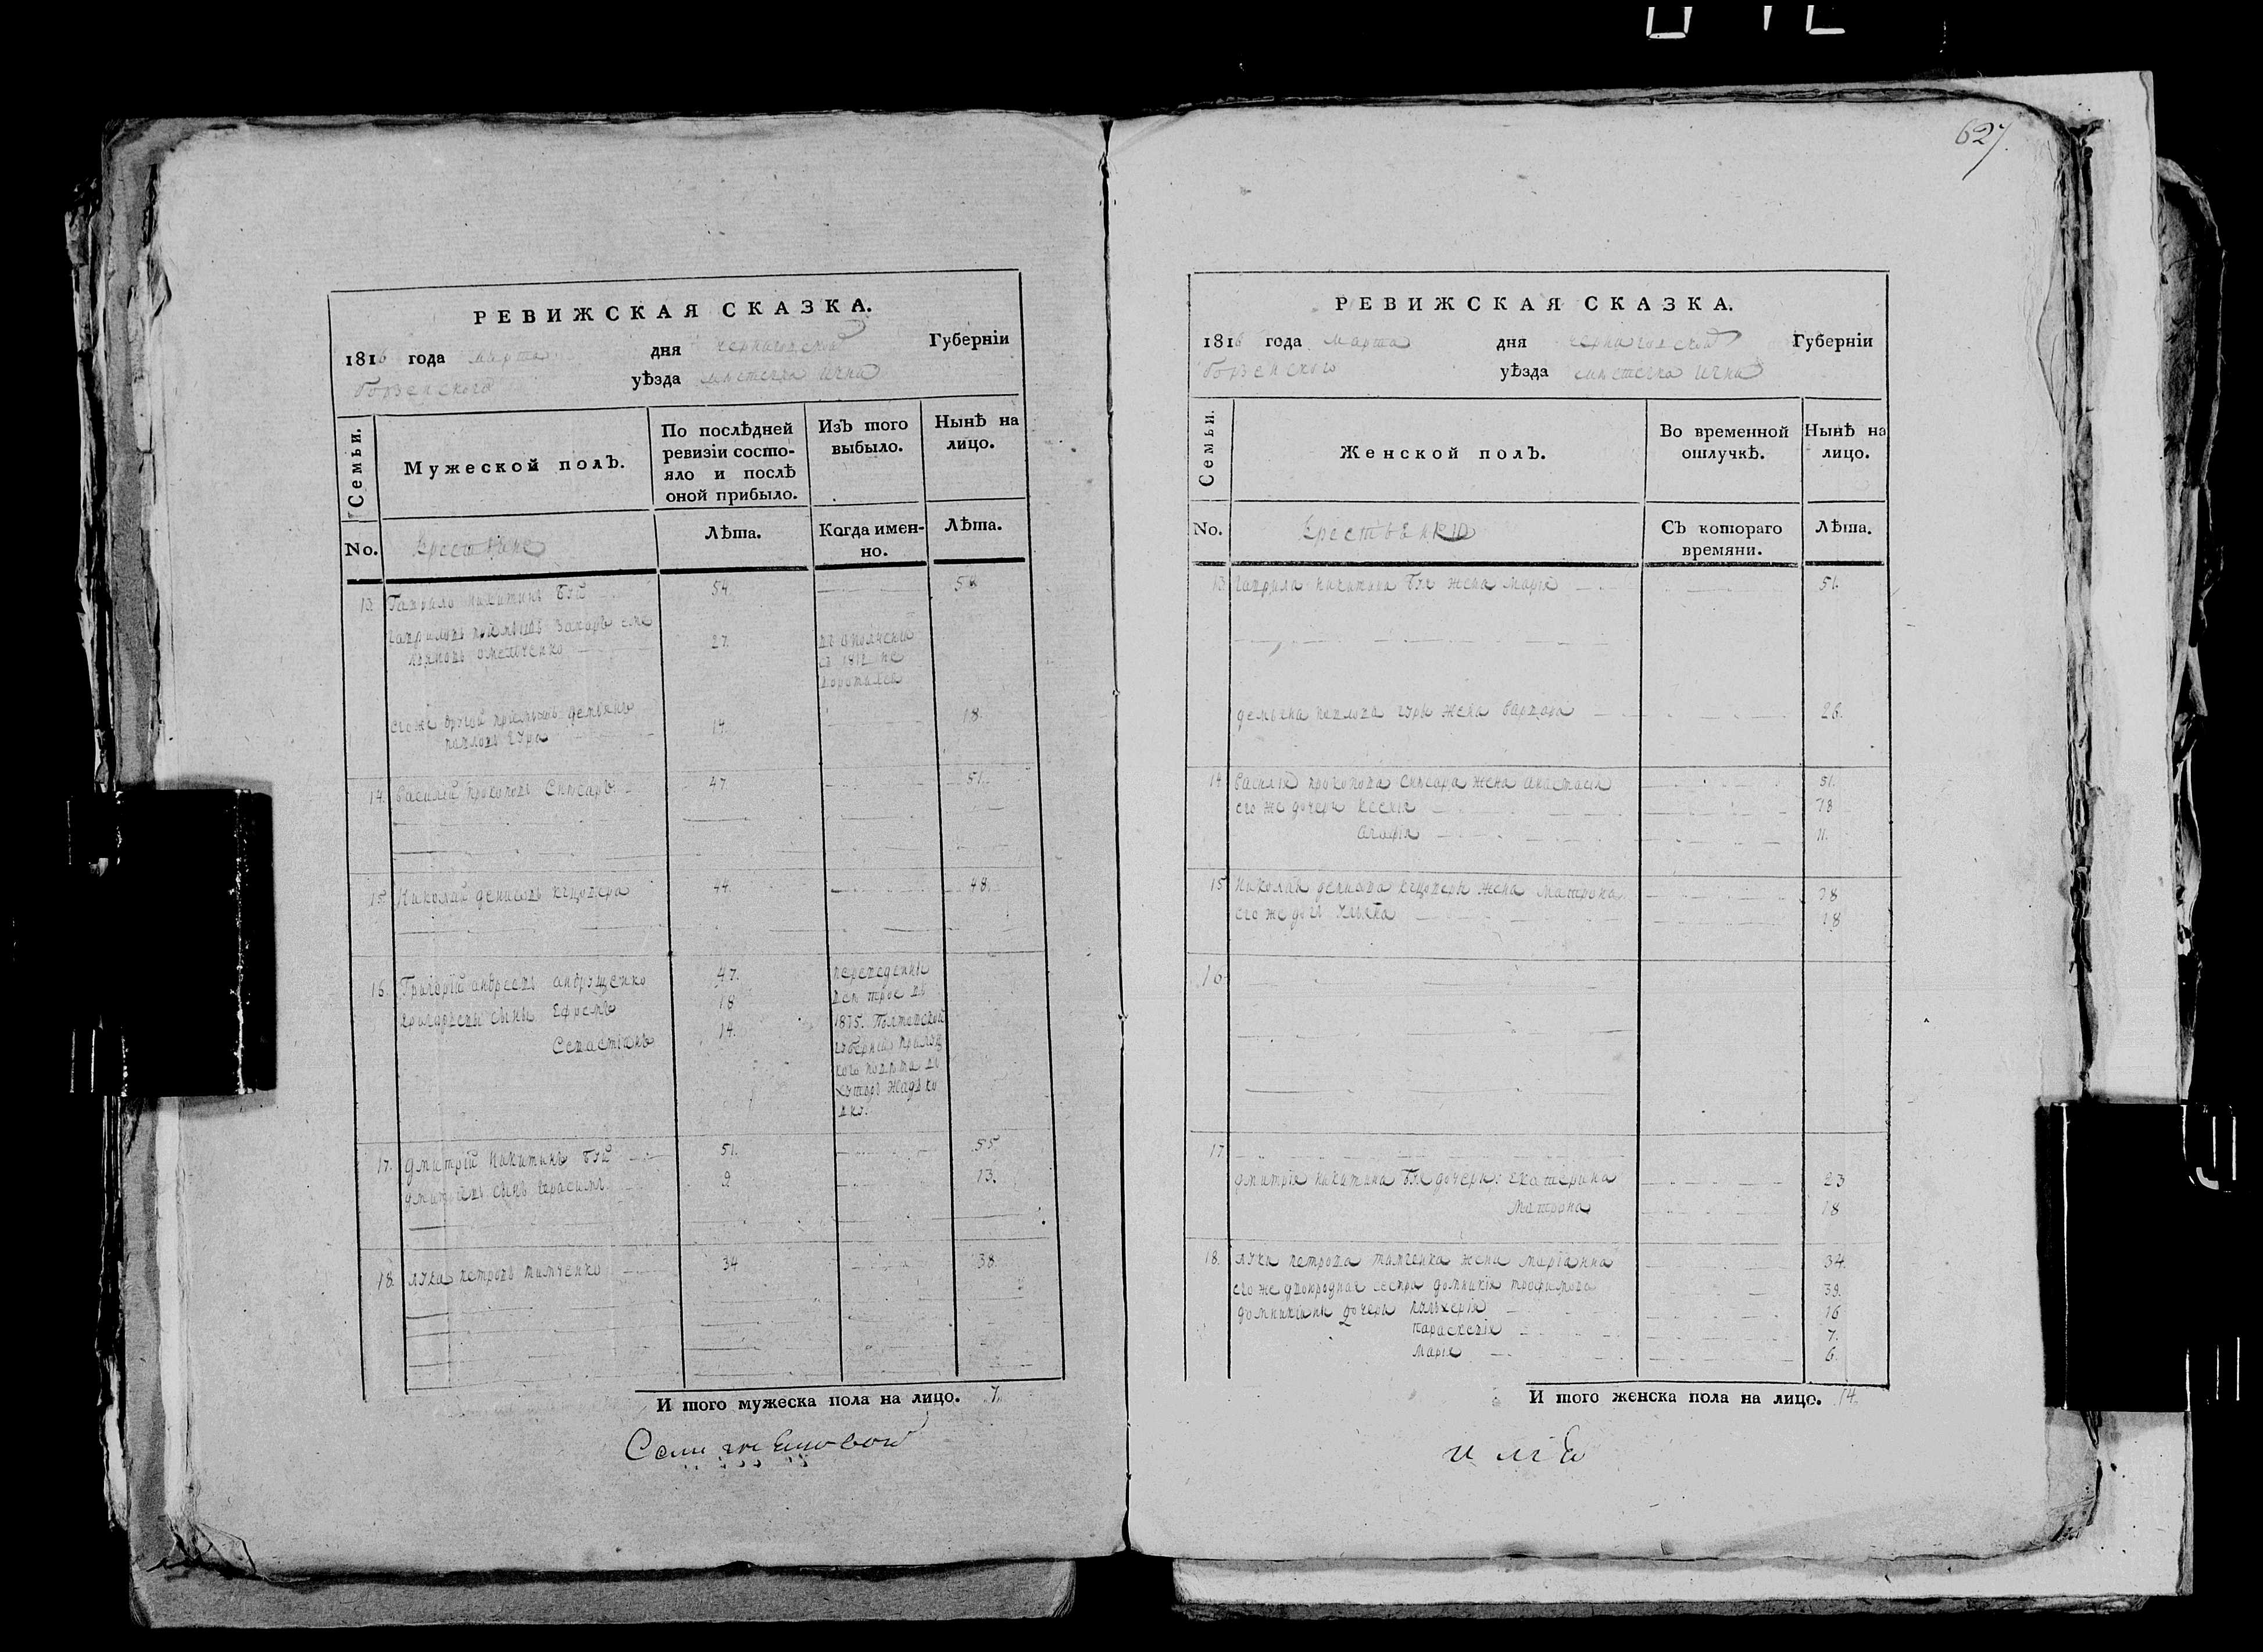 627.
РЕВИЖСКАЯ СКАЗКА.
1816 года марта дня черниговской Губерніи
Борзенского уѣзда мѣстечка Ични
Семьи. Мужеской полЪ. По послѣдней ревизіи состояло и послѣ оной прибыло. ИзЪ того выбыло. НынѣЪ на лицо.
No. крестьяне Лѣта. Когда именно. Лѣта.
13. Гаврило никитинъ Буй 54. 58
гавриловъ приймышъ Захаръ емельяновъ омельченко 27. въ ополчении съ 1812 не воротился
егоже другой приймышъ демьянъ павловъ гура 14. 18.
14. Василий прокоповъ Слюсарь 47 51.
15. Николай денисовъ 44. 48.
16. Григорий андреевъ андрущенко 47.
григорьевы сыны Ефремъ 18
Севастіанъ 14.
переведены все трое въ 1815. Полтавской губернии прилуцкого повѣта въ хуторъ
17. дмитрій никитинъ Буй 51. 55
дмитріевъ сынъ герасимъ 9 13.
18. лука петровъ тимченко 34 38.
И того мужеска пола на лицо. 7.
РЕВИЖСКАЯ СКАЗКА.
1816 года марта дня черниговской Губерніи
Борзенского уѣзда мѣстечка Ични
Семьи. Женской полЪ. Во временной отлучкѣ. Нынѣ на лицо.
No. крестьянки СЪ котораго времяни. Лѣта.
13 гаврила никитина Буя жена марія 51.
демьяна павлова гуры жена варвара 26.
14 василія прокопова слюсара жена анастасія 51.
его же дочери ксенія 18
агафія 11.
15 николая денисова жена матрона 38
его же дочь ульяна 18
16
17
дмитрія никитина Буя дочери: екатерина 23
матрона 18
18. луки петрова тимченка жена маріанна 34.
его же двоюродная сестра домникія трофимова 39.
домникіины дочери пульхерія 16
параскевія 7.
марія 6.
И того женска пола на лицо. 14.